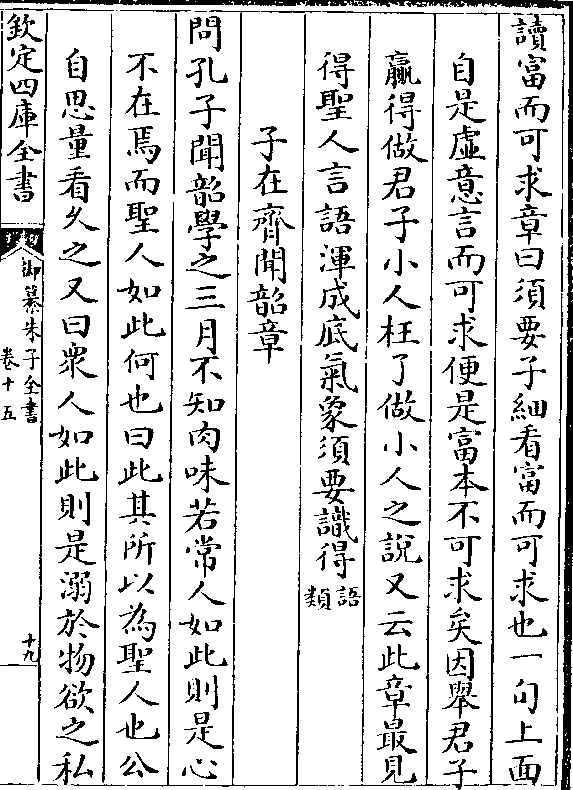 讀富而可求章曰須要子細看富而可求也一句上面
自是虛意言而可求便是富本不可求矣因舉君子
贏得做君子小人枉了做小人之說又云此章最見
得聖人言語渾成底氣象須要識得語類
子在齊聞韶章
問孔子聞韶學之三月不知肉味若常人如此則是心
不在焉而聖人如此何也曰此其所以為聖人也公
自思量看久之又曰衆人如此則是溺於物欲之私
欽定四庫全書
御纂朱子全書
卷十五
十九